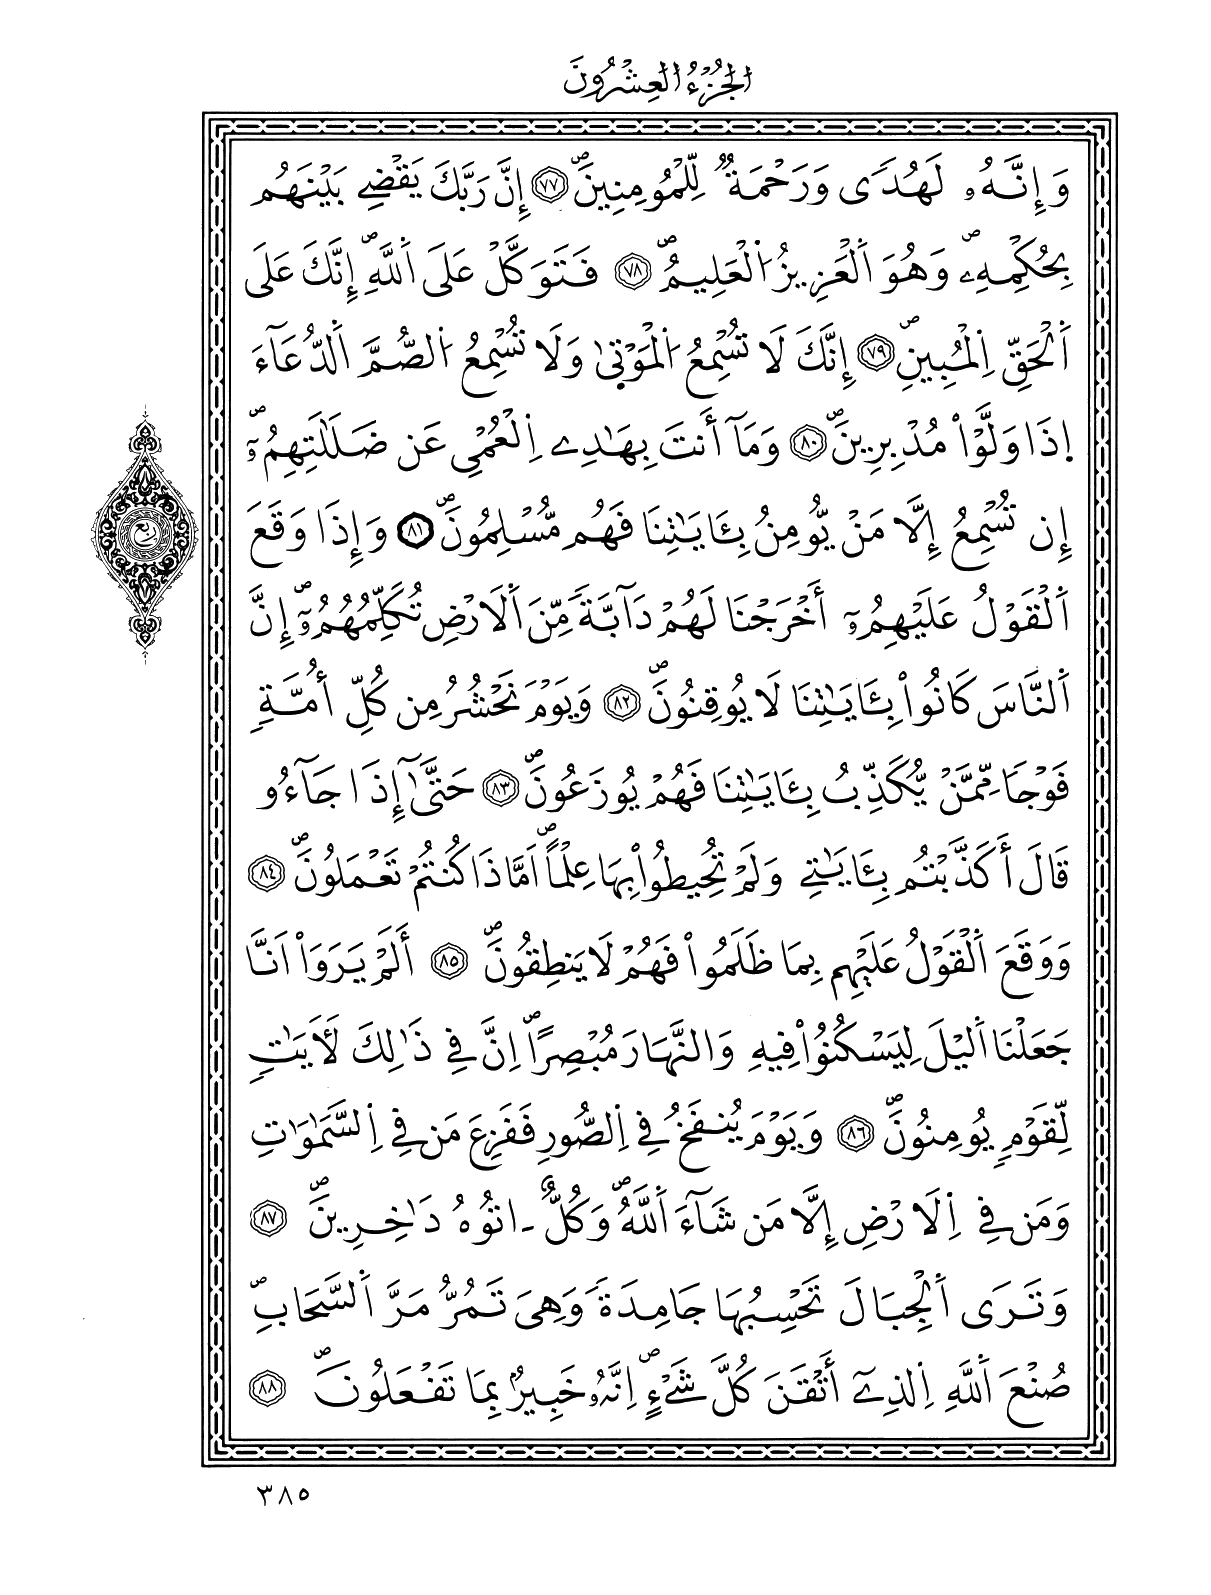 الجُزْءُ العِشْرُونَ
وَإِنَّهُۥ لَهُدٗى وَرَحْمَةٞ لِّلْمُومِنِينَۖ ٧٧ إِنَّ رَبَّكَ يَقْضِے بَيْنَهُم
بِحُكْمِهِۦۖ وَهُوَ اَ۬لْعَزِيزُ اُ۬لْعَلِيمُۖ ٧٨ فَتَوَكَّلْ عَلَى اَ۬للَّهِۖ إِنَّكَ عَلَى
اَ۬لْحَقِّ اِ۬لْمُبِينِۖ ٧٩ إِنَّكَ لَا تُسْمِعُ اُ۬لْمَوْت۪ىٰ وَلَا تُسْمِعُ اُ۬لصُّمَّ اَ۬لدُّعَآءَ
اِذَا وَلَّوْاْ مُدْبِرِينَۖ ٨٠ وَمَآ أَنتَ بِهَٰدِے اِ۬لْعُمْيِ عَن ضَلَٰلَتِهِمُۥٓۖ
إِن تُسْمِعُ إِلَّا مَنْ يُّومِنُ بِـَٔايَٰتِنَا فَهُم مُّسْلِمُونَۖ ٨١ وَإِذَا وَقَعَ
اَ۬لْقَوْلُ عَلَيْهِمُۥٓ أَخْرَجْنَا لَهُمْ دَآبَّةٗ مِّنَ اَ۬لَارْضِ تُكَلِّمُهُمُۥٓۖ إِنَّ
اَ۬لنَّاسَ كَانُواْ بِـَٔايَٰتِنَا لَا يُوقِنُونَۖ ٨٢ وَيَوْمَ نَحْشُرُ مِن كُلِّ أُمَّةٖ
فَوْجاٗ مِّمَّنْ يُّكَذِّبُ بِـَٔايَٰتِنَا فَهُمْ يُوزَعُونَۖ ٨٣ حَتَّىٰٓ إِذَا جَآءُو
قَالَ أَكَذَّبْتُم بِـَٔايَٰتِے وَلَمْ تُحِيطُواْ بِهَا عِلْماًۖ اَمَّاذَا كُنتُمْ تَعْمَلُونَۖ ٨٤
وَوَقَعَ اَ۬لْقَوْلُ عَلَيْهِم بِمَا ظَلَمُواْ فَهُمْ لَا يَنطِقُونَۖ ٨٥ أَلَمْ يَرَوَاْ اَنَّا
جَعَلْنَا اَ۬ليْلَ لِيَسْكُنُواْ فِيهِ وَالنَّهَارَ مُبْصِراًۖ اِنَّ فِے ذَٰلِكَ لَأٓيَٰتٖ
لِّقَوْمٖ يُومِنُونَۖ ٨٦ وَيَوْمَ يُنفَخُ فِے اِ۬لصُّورِ فَفَزِعَ مَن فِے اِ۬لسَّمَٰوَٰتِ
وَمَن فِے اِ۬لَارْضِ إِلَّا مَن شَآءَ اَ۬للَّهُۖ وَكُلٌّ ـ اتُوهُ دَٰخِرِينَۖ ٨٧
وَتَرَى اَ۬لْجِبَالَ تَحْسِبُهَا جَامِدَةٗ وَهِيَ تَمُرُّ مَرَّ اَ۬لسَّحَابِۖ
صُنْعَ اَ۬للَّهِ اِ۬لذِےٓ أَتْقَنَ كُلَّ شَےْءٍۖ اِنَّهُۥ خَبِيرُۢ بِمَا تَفْعَلُونَۖ ٨٨
ربع
٣٨٥